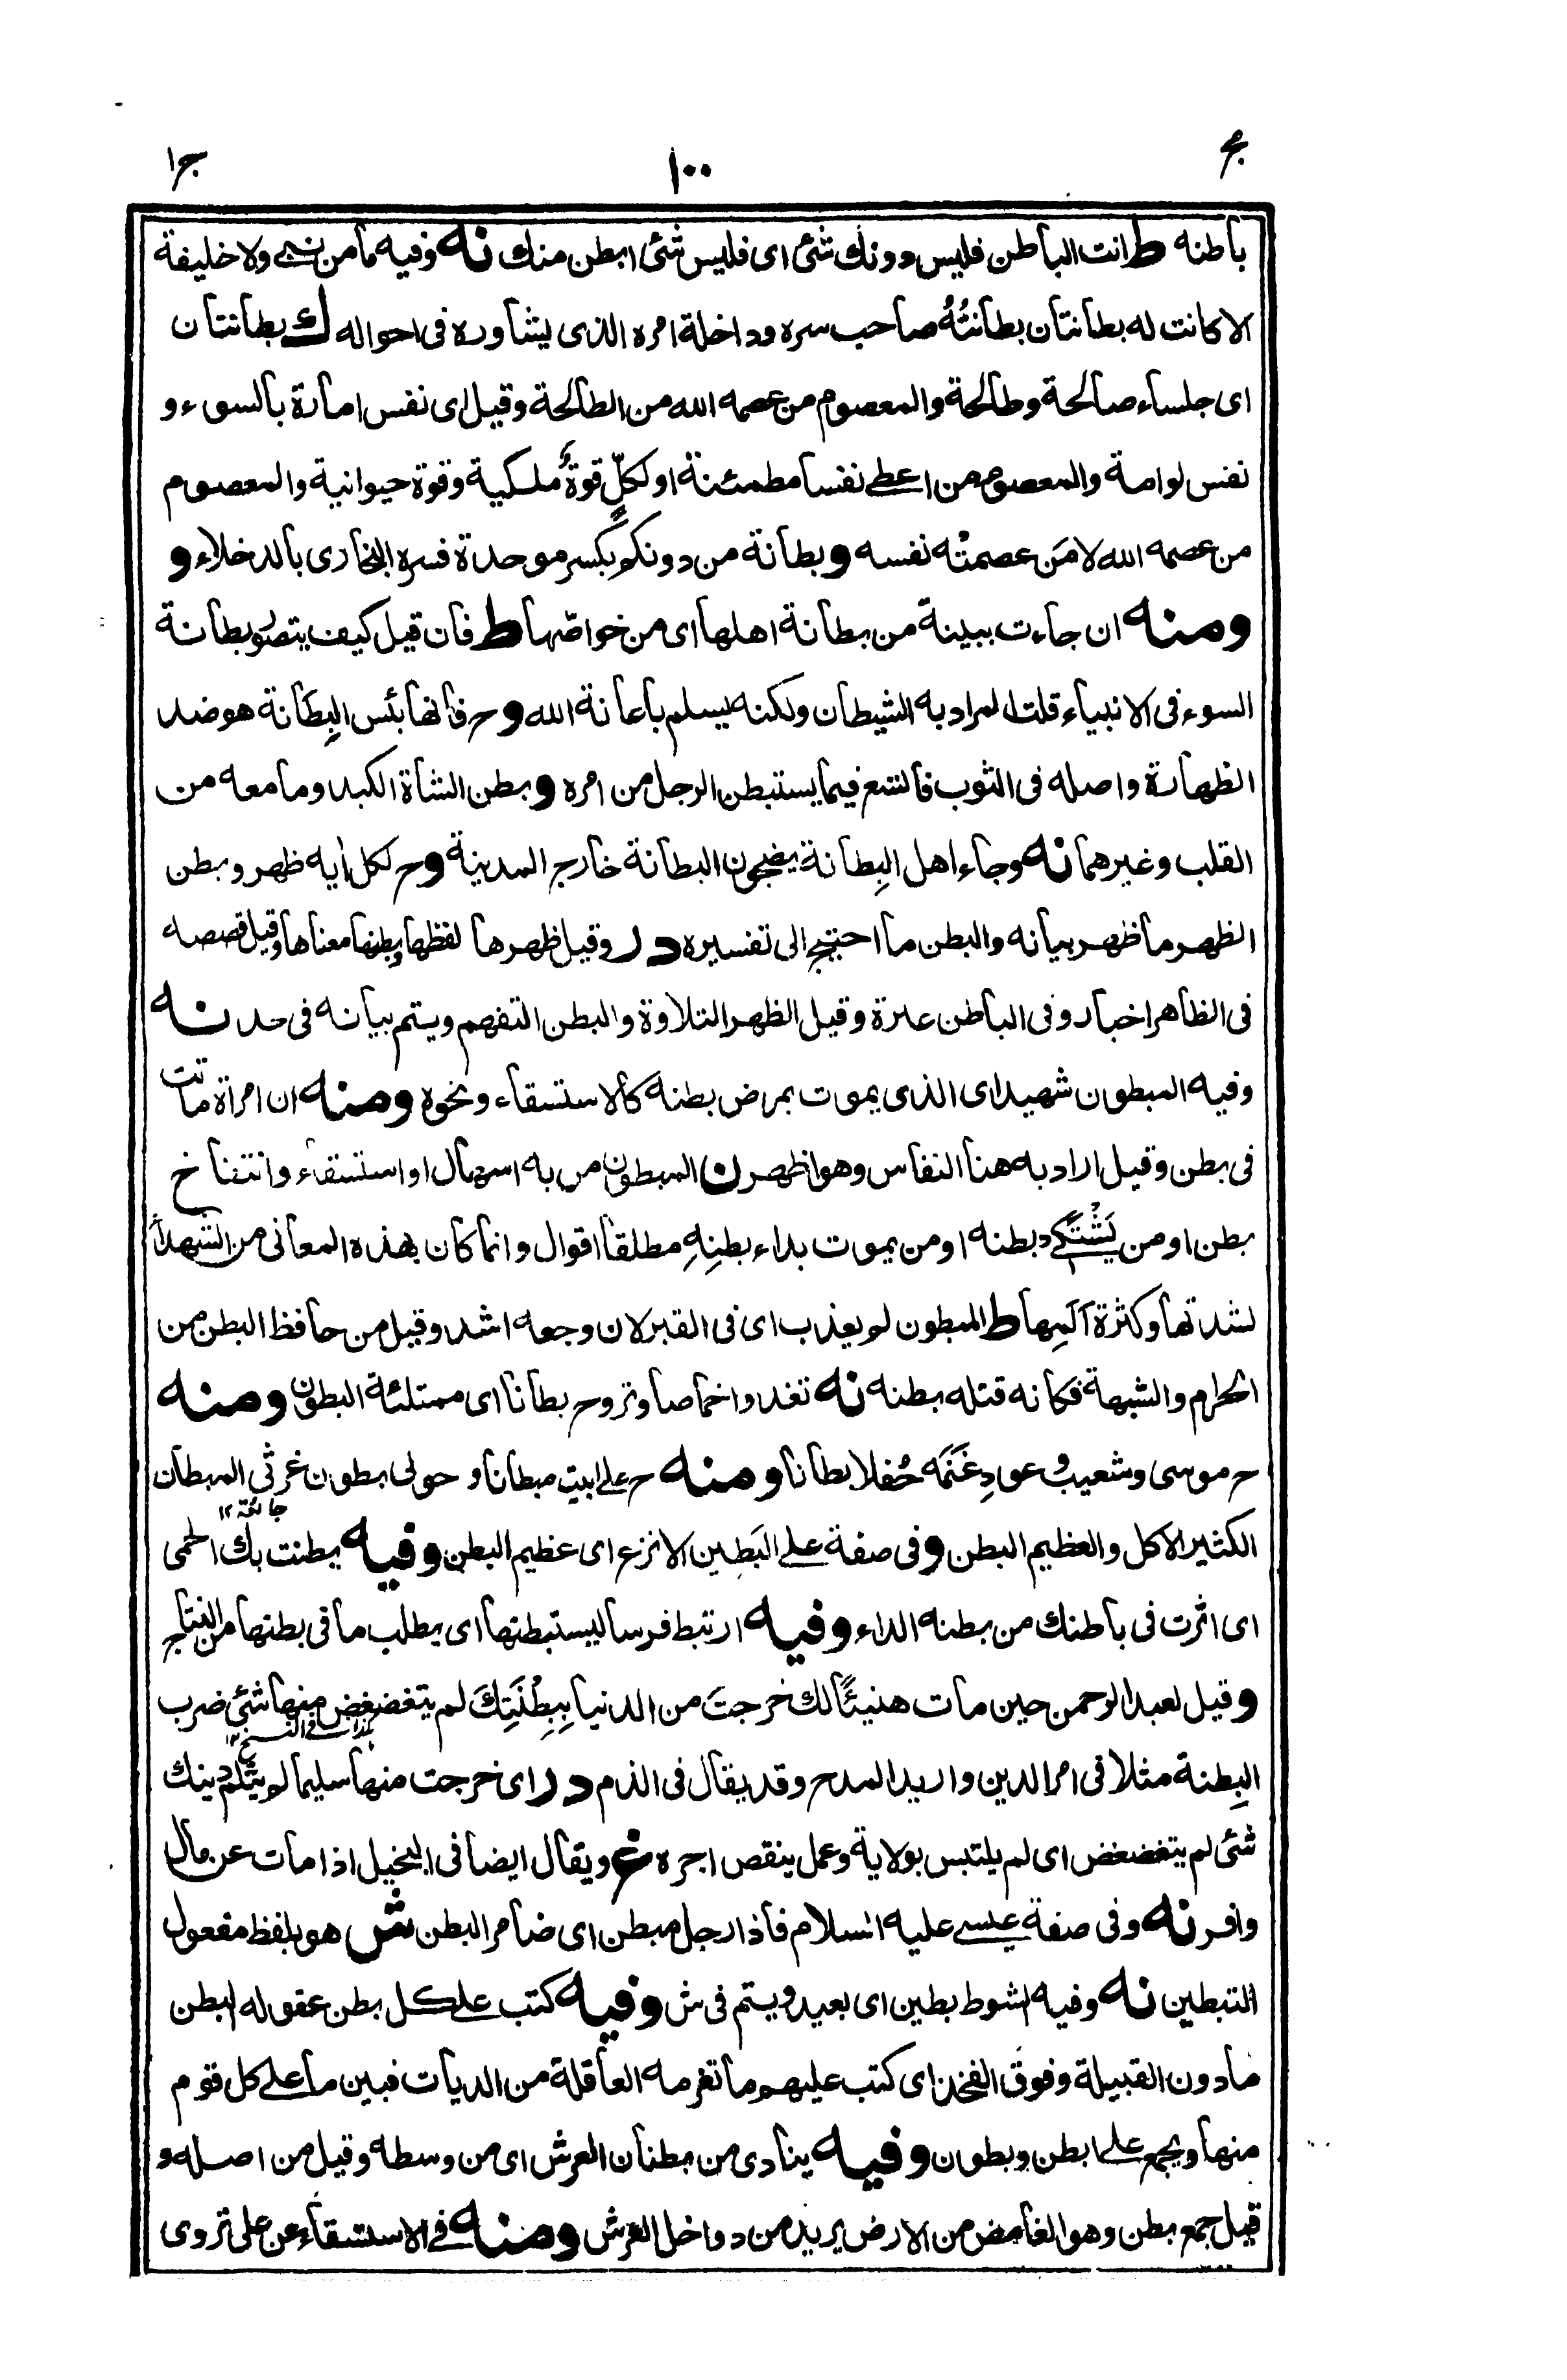 مج
١٠٠
ج١
باطنه ط انت الباطن فليس دونك شئ اى فليس شئ ابطن منك نه وفيه ما من نبى ولا خليفة
الا كانت له بطانتان بطانتُهُ صاحب سره وداخلة امره الذى يشاوره فى احواله ك بطانتان
اى جلساء صالحة وطالحة والمعصوم من عصمه الله من الطالحة وقيل اى نفس امارة بالسوء و
نفس لوامة والمعصوم من اعطى نفسا مطمئنة او لكلٍّ قوةٌ ملكية وقوة حيوانية والمعصوم
من عصمه الله لا مَن عصمتْه نفسه و بطانة من دونكم بكسر موحدة فسره البخارى بالدخلاء و
ومنه ان جاءت ببينة من بطانة اهلها اى من خواصّها ط فان قيل كيف يتصور بطانة
السوء فى الانبياء قلت المراد به الشيطان ولكنه يسلم باعانة الله و ح فانها بئس البِطَانة هو ضد
الظهارة واصله فى الثوب فاتسع فيما يستبطن الرجل من امره و بطن الشاة الكبد وما معه من
القلب وغيرهما نه وجاء اهل البِطانة يضجون البطانة خارج المدينة و ح لكل أية ظهر وبطن
الظهر ما ظهر بيانه والبطن ما احتيج الى تفسيره در وقيل ظهرها لفظها وبطنها معناها وقيل قصصه
فى الظاهر اخبار وفى الباطن عبرة وقيل الظهر التلاوة والبطن التفهم ويتم بيانه فى حد نه
وفيه المبطون شهيد اى الذى يموت بمرض بطنه كالاستسقاء ونحوه ومنه ان امراة ماتت
فى بطن وقيل اراد به هنا النفاس وهو اظهر ن المبطون من به اسهال او استسقاء وانتفاخ
بطن او من يَشْتَكى بطنه او من يموت بداء بطنِهِ مطلقا اقوال وانما كان بهذه المعانى من الشهداء
لشدتها وكثرة آلَمِها ط المبطون لم يعذب اى فى القبر لان وجعه اشد وقيل من حافظ البطن من
الحرام والشبهة فكانه قتله بطنه نه تغدوا خماصا وتروح بطانا اى ممتلئة البطون ومنه
ح موسى وشعيب وعودِ غَنَمَه حُفلا بطانا ومنه ح على ابيت مبطانا و حولى بطون غرثى المبطان
جائعة ١٢
الكثير الاكل والعظيم البطن و فى صفة على البَطِين الانزع اى عظيم البطن وفيه بطنت بك الحمى
اى اثرت فى باطنك من بطنه الداء وفيه ارتبط فرسا ليستبطنها اى يطلب ما فى بطنها من النتاج
و قيل لعبد الرحمن حين مات هنيئًا لك خرجتَ من الدنيا بِبِطْنَتِكَ لم يتغضغض منها شئ ضرب
البِطنة مثلا فى امر الدين واريد المدح وقد يقال فى الذم در اى خرجت منها سليما لم يثلم دينك
شئ لم يتغضغض اى لم يلتبس بولاية وعمل ينقص اجره غ ويقال ايضا فى البخيل اذا مات عن مال
وافر نه وفى صفة عيسى عليه السلام فاذا رجل مبطن اى ضامر البطن ش هو بلفظ مفعول
التبطين نه وفيه الشوط بطين اى بعيد ويتم فى ش وفيه كتب على كل بطن عقوله البطن
ما دون القبيلة وفوق الفخذ اى كتب عليهم ما تغرمه العاقلة من الديات فبين ما على كل قوم
منها ويجمع على ابطن وبطون وفيه ينادى من بطنان العرش اى من وسطه وقيل من اصله و
قيل جمع بطن وهو الغامض من الارض يريد من دواخل العرش ومنه فى الاستسقاء عن على تروى